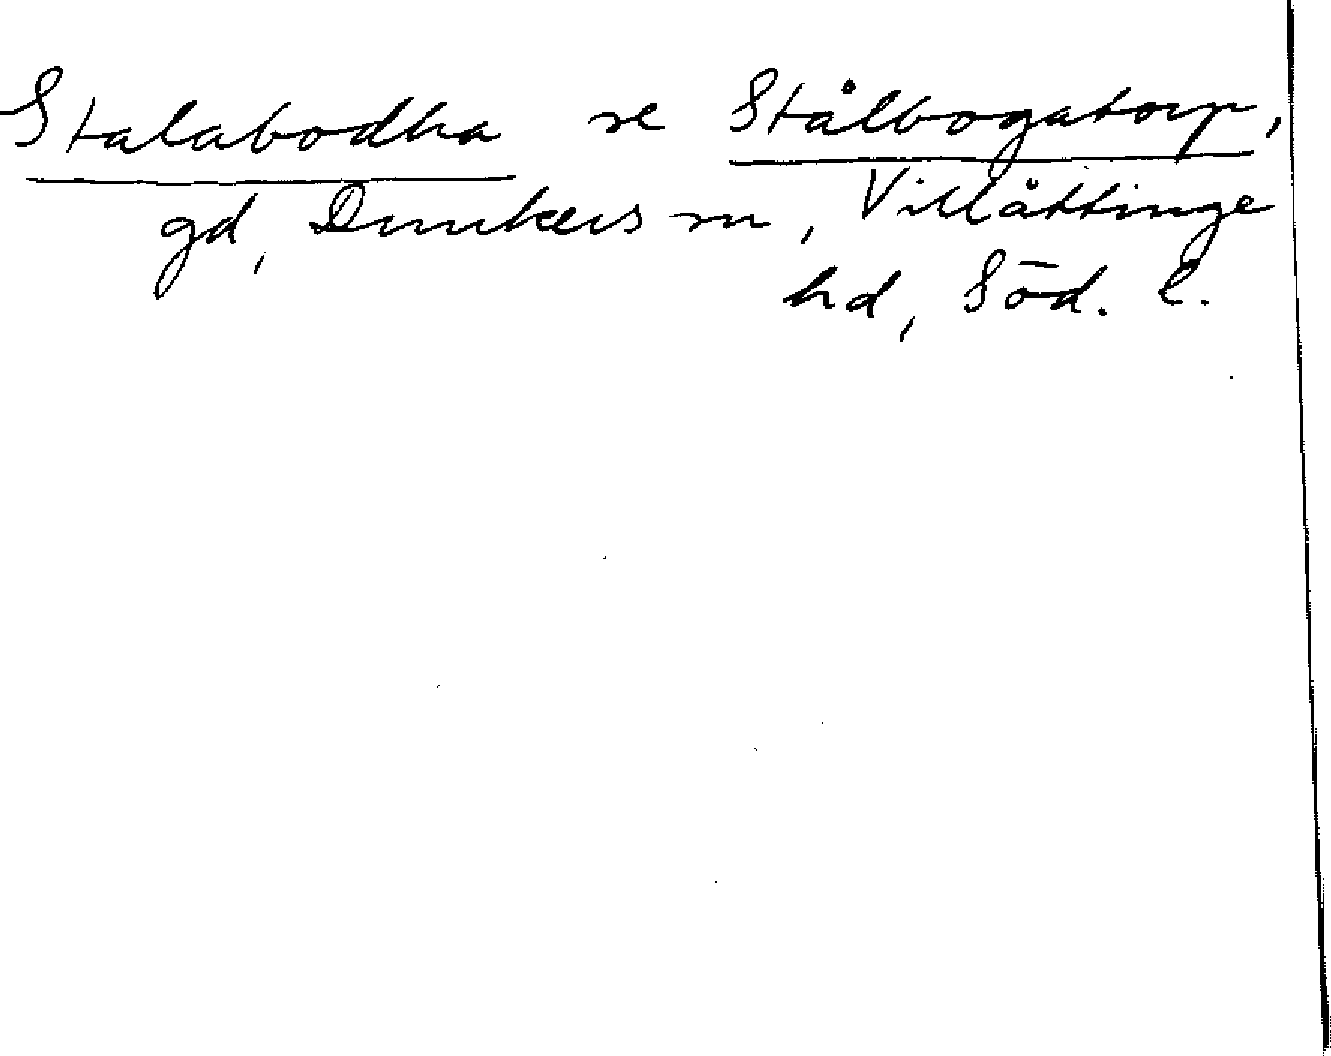 Stalabodha se Stålbogatorp,
gd, Dunkers sn, Villåttinge
hd, Söd. l.